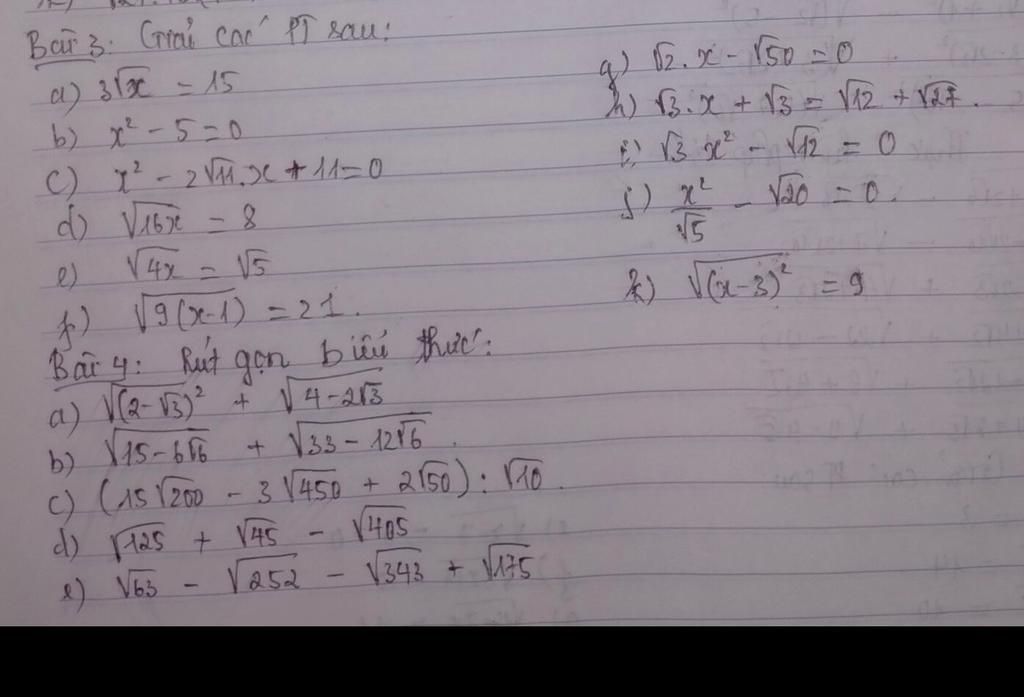 Bài 3: Giải các PT sau:
a) 3√x = 15
b) x² - 5 = 0
c) x² - 2√11.x + 11 = 0
d) √16x = 8
e) √4x = √5
f) √9(x-1) = 21.
g) √2.x - √50 = 0
h) √3.x + √3 = √12 + √27.
i) √3 x² - √12 = 0
j) x²/√5 - √20 = 0.
k) √(x-3)² = 9
Bài 4: Rút gọn biểu thức:
a) √(2-√3)² + √4-2√3
b) √15-6√6 + √33-12√6.
c) (15√200 - 3√450 + 2√50) : √10.
d) √125 + √45 - √405
e) √63 - √252 - √343 + √175